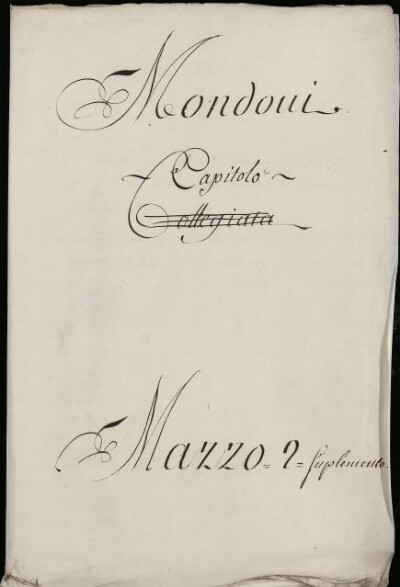 Mondoui.
~ Capitolo ~
~~Collegiata~~
Mazzo = 2 = suplemento.